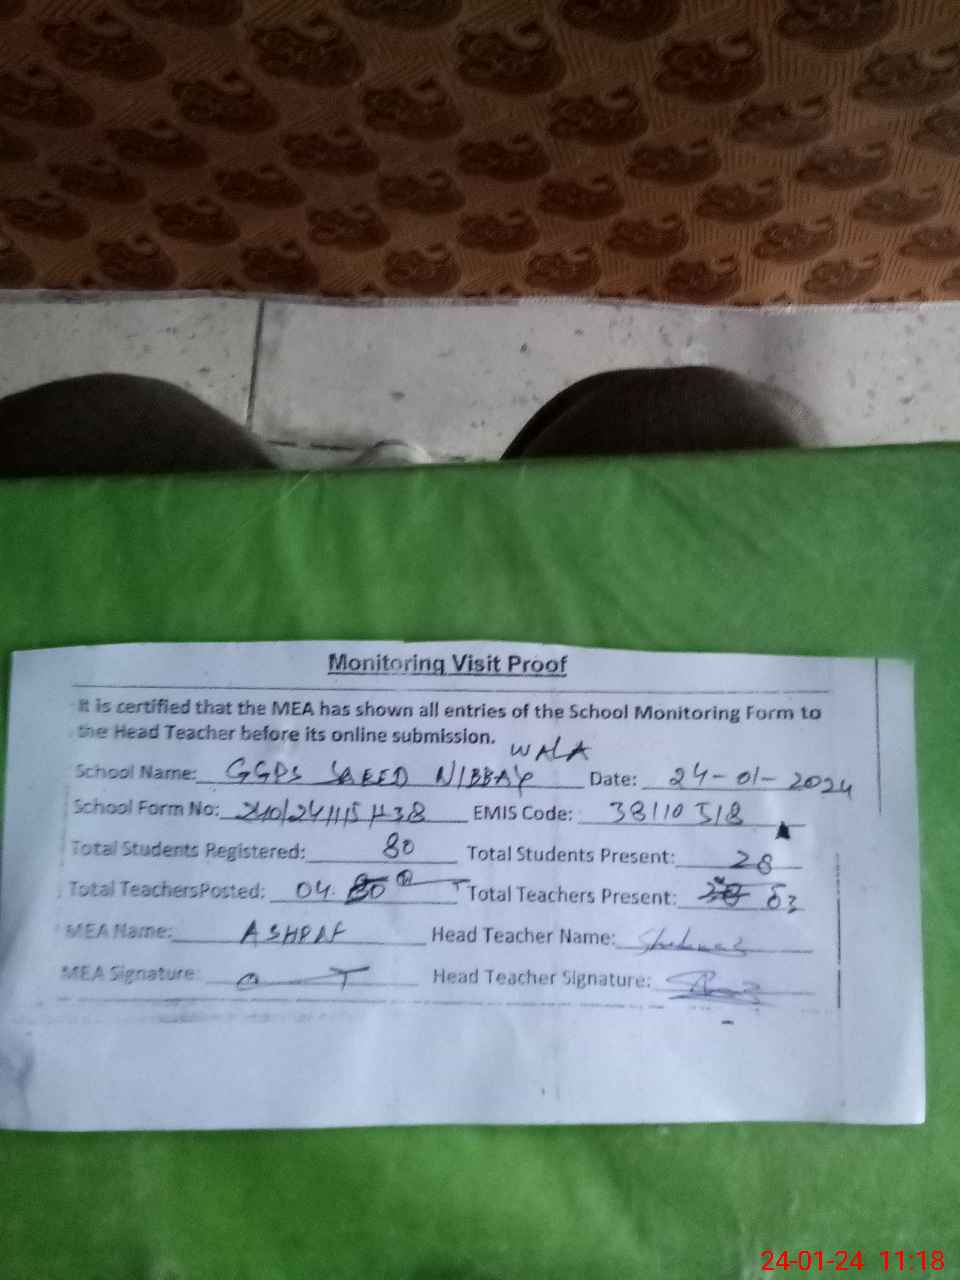 Monitoring Visit Proof
It is certified that the MEA has shown all entries of the School Monitoring Form to
the Head Teacher before its online submission.
WALA
School Name: GGPS SAEED NIBBAY Date: 24-01-2024
School Form No: EMIS Code: 38110518
Total Students Registered: 80 Total Students Present: 28
Total TeachersPosted: 04 Total Teachers Present: 03
MEA Name: ASHRAF Head Teacher Name:
MEA Signature: Head Teacher Signature:
24-01-24 11:18